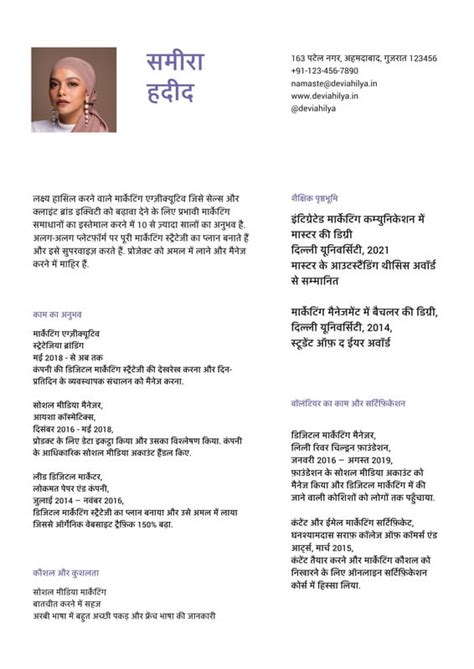 समीरा
हदीद
163 पटेल नगर, अहमदाबाद, गुजरात 123456
+91-123-456-7890
namaste@deviahilya.in
www.deviahilya.in
@deviahilya
लक्ष्य हासिल करने वाले मार्केटिंग एग्ज़ीक्यूटिव जिसे सेल्स और
क्लाइंट ब्रांड इक्विटी को बढ़ावा देने के लिए प्रभावी मार्केटिंग
समाधानों का इस्तेमाल करने में 10 से ज़्यादा सालों का अनुभव है.
अलग-अलग प्लेटफ़ॉर्म पर पूरी मार्केटिंग स्ट्रैटेजी का प्लान बनाते हैं
और इसे सुपरवाइज़ करते हैं. प्रोजेक्ट को अमल में लाने और मैनेज
करने में माहिर हैं.
काम का अनुभव
मार्केटिंग एग्ज़ीक्यूटिव
स्ट्रेटेजिया ब्रांडिंग
मई 2018 - से अब तक
कंपनी की डिजिटल मार्केटिंग स्ट्रैटेजी की देखरेख करना और दिन-
प्रतिदिन के व्यवस्थापक संचालन को मैनेज करना.
सोशल मीडिया मैनेजर,
आयशा कॉस्मेटिक्स,
दिसंबर 2016 - मई 2018,
प्रोडक्ट के लिए डेटा इकट्ठा किया और उसका विश्लेषण किया. कंपनी
के आधिकारिक सोशल मीडिया अकाउंट हैंडल किए.
लीड डिजिटल मार्केटर,
लोकमत पेपर एंड कंपनी,
जुलाई 2014 – नवंबर 2016,
डिजिटल मार्केटिंग स्ट्रैटेजी का प्लान बनाया और उसे अमल में लाया
जिससे ऑर्गेनिक वेबसाइट ट्रैफ़िक 150% बढ़ा.
कौशल और कुशलता
सोशल मीडिया मार्केटिंग
बातचीत करने में सहज
अरबी भाषा में बहुत अच्छी पकड़ और फ्रेंच भाषा की जानकारी
शैक्षिक पृष्ठभूमि
इंटिग्रेटेड मार्केटिंग कम्युनिकेशन में
मास्टर की डिग्री
दिल्ली यूनिवर्सिटी, 2021
मास्टर के आउटस्टैंडिंग थीसिस अवॉर्ड
से सम्मानित
मार्केटिंग मैनेजमेंट में बैचलर की डिग्री,
दिल्ली यूनिवर्सिटी, 2014,
स्टूडेंट ऑफ़ द ईयर अवॉर्ड
वॉलंटियर का काम और सर्टिफ़िकेशन
डिजिटल मार्केटिंग मैनेजर,
लिली रिवर चिल्ड्रन फ़ाउंडेशन,
जनवरी 2016 – अगस्त 2019,
फ़ाउंडेशन के सोशल मीडिया अकाउंट को
मैनेज किया और डिजिटल मार्केटिंग में की
जाने वाली कोशिशों को लोगों तक पहुँचाया.
कंटेंट और ईमेल मार्केटिंग सर्टिफ़िकेट,
घनश्यामदास सराफ़ कॉलेज ऑफ़ कॉमर्स एंड
आर्ट्स, मार्च 2015,
कंटेंट तैयार करने और मार्केटिंग कौशल को
निखारने के लिए ऑनलाइन सर्टिफ़िकेशन
कोर्स में हिस्सा लिया.